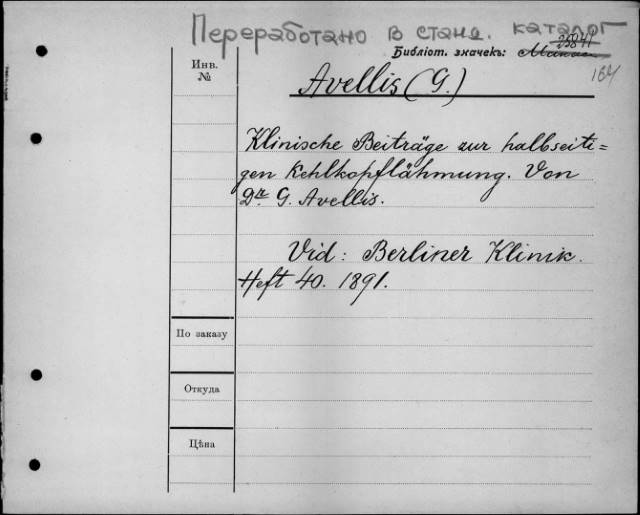 Переработано в станд. каталог
25841
Библиот. значекъ:
164
Инв.
№
Avellis (G.)
Klinische Beiträge zur halbseiti=
gen Kehlkopflähmung. Von
Dr. G. Avellis.
Vid: Berliner Klinik.
Heft 40. 1891.
По заказу
Откуда
Цѣна